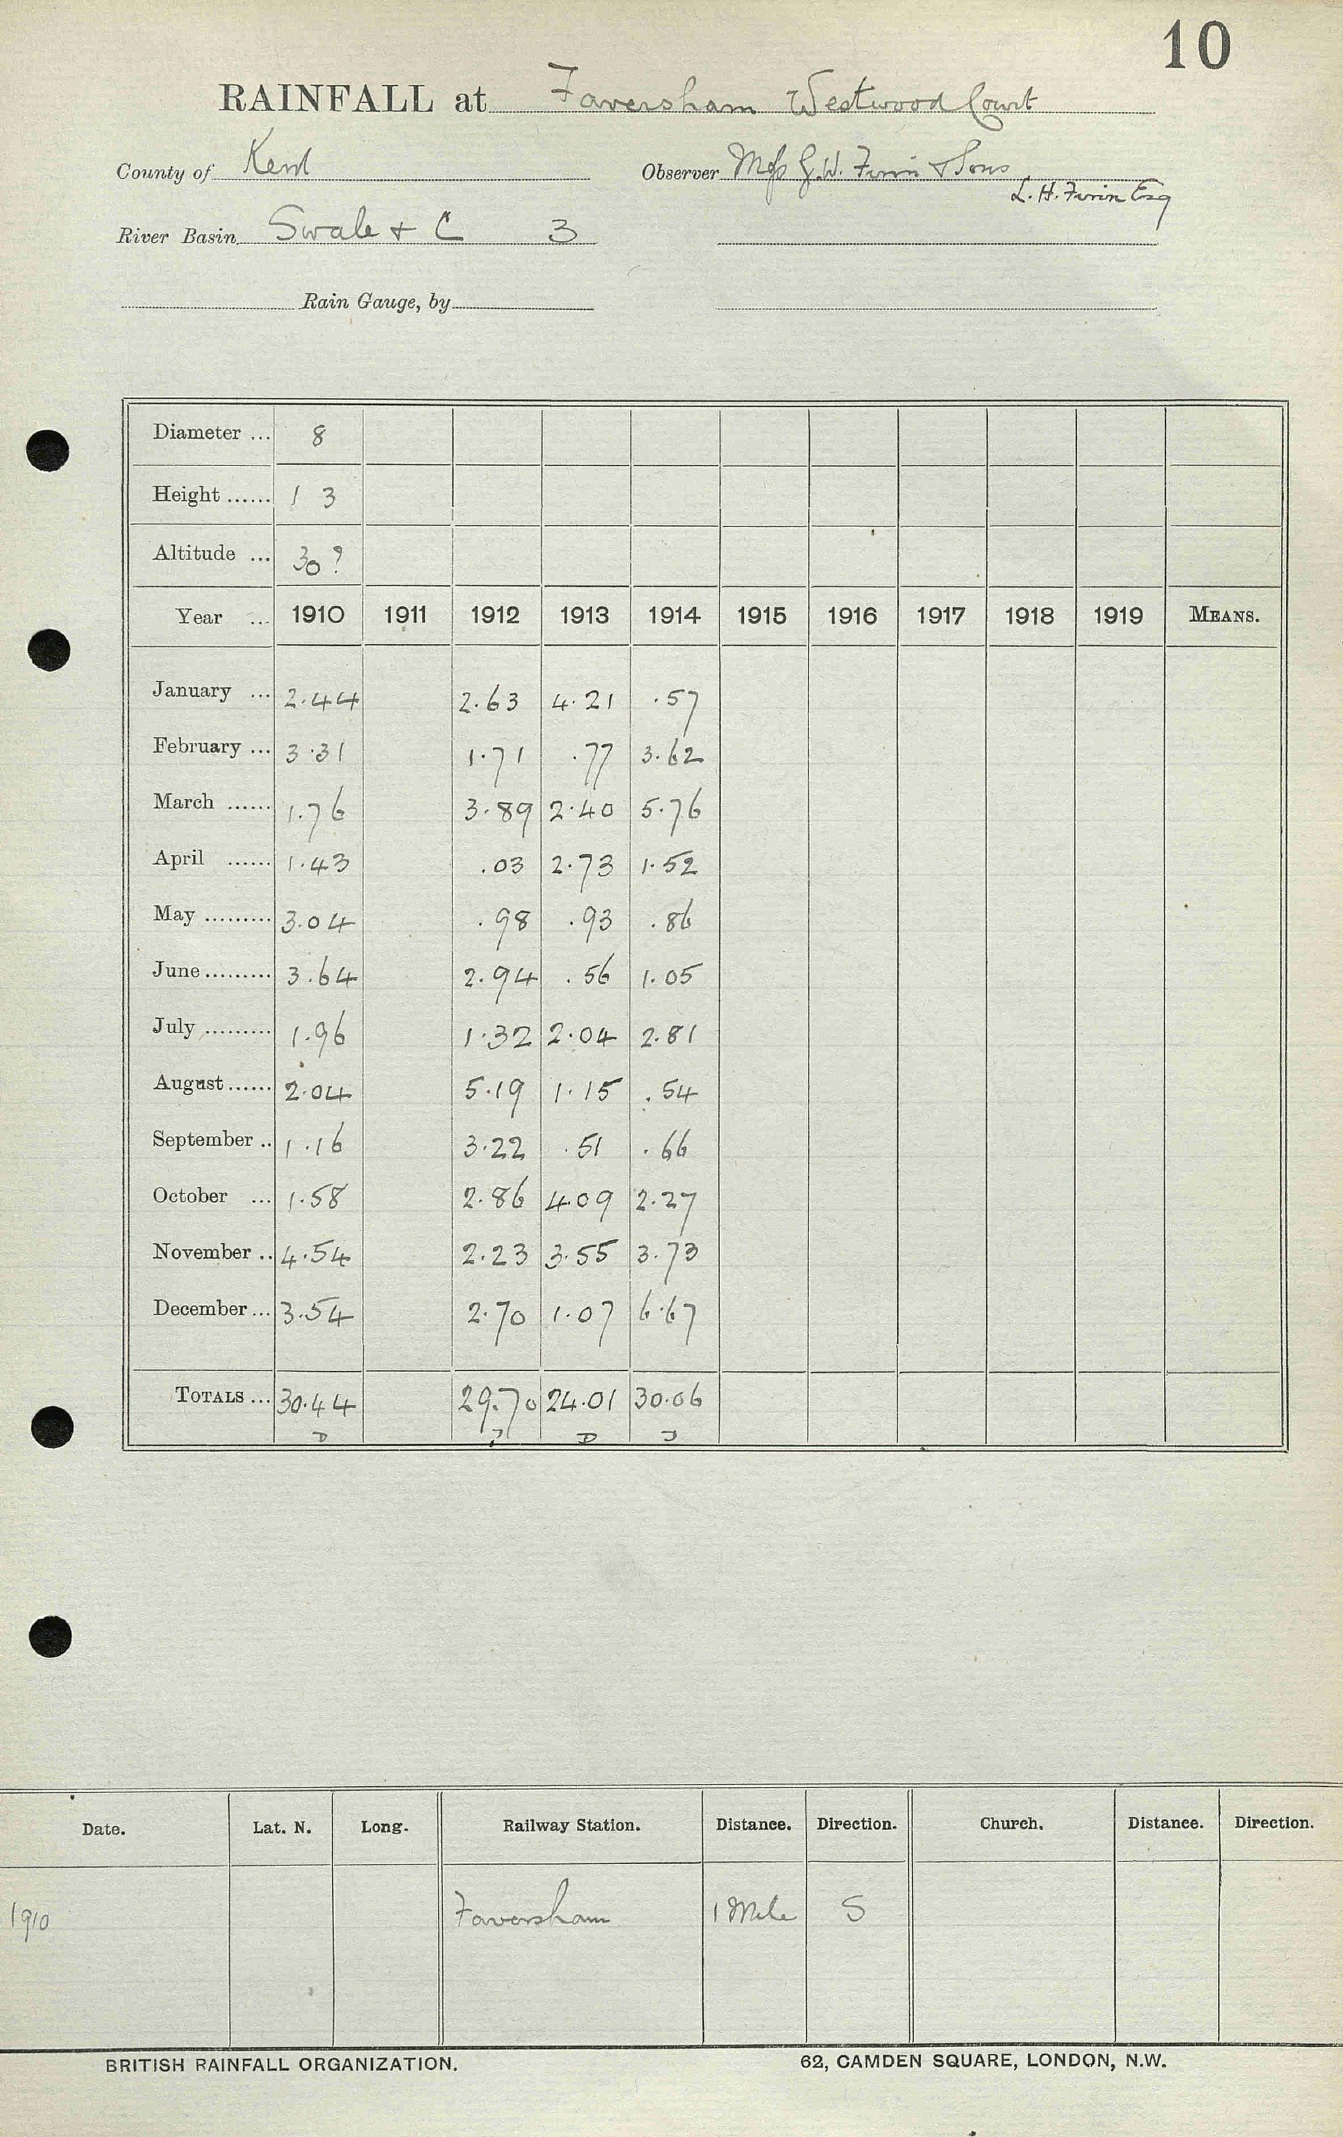 10
RAINFALL at Faversham Westwood Court
County of Kent Observer Mess G.W. Finn & Sons
L. H. Finn Esq
River Basin Swale & C 3
Rain Gauge, by
Diameter ... 8
Height ...... 1 3
Altitude ... 30 ?
Year ... 1910 1911 1912 1913 1914 1915 1916 1917 1918 1919 MEANS.
January ... 2.44 2.63 4.21 .57
February ... 3.31 1.71 .77 3.62
March ...... 1.76 3.89 2.40 5.76
April ...... 1.43 .03 2.73 1.52
May ......... 3.04 .98 .93 .86
June ......... 3.64 2.94 .56 1.05
July ......... 1.96 1.32 2.04 2.81
August ...... 2.04 5.19 1.15 .54
September .. 1.16 3.22 .51 .66
October ... 1.58 2.86 4.09 2.27
November .. 4.54 2.23 3.55 3.73
December ... 3.54 2.70 1.07 6.67
TOTALS ... 30.44 29.70 24.01 30.06
Date. Lat. N. Long. Railway Station. Distance. Direction. Church. Distance. Direction.
1910 Faversham 1 Mile S
BRITISH RAINFALL ORGANIZATION. 62, CAMDEN SQUARE, LONDON, N.W.